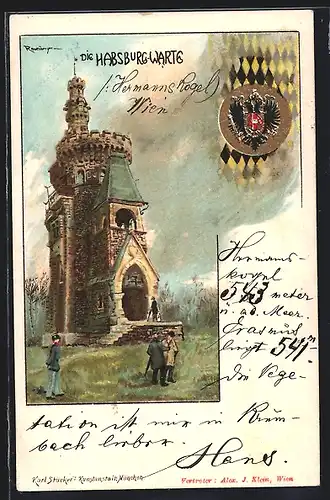 DIE HABSBURG-WARTE
/: Hermanns Kogel)
Wien
Hermanns-
kogel
543 meter
ü. ad. Meer.
liegt 541 m
die Vege-
tation ist mir in Krum-
bach lieber.
Hans.
Karl Stücker's Kunstanstalt, München
Vertreter: Alex. J. Klein, Wien